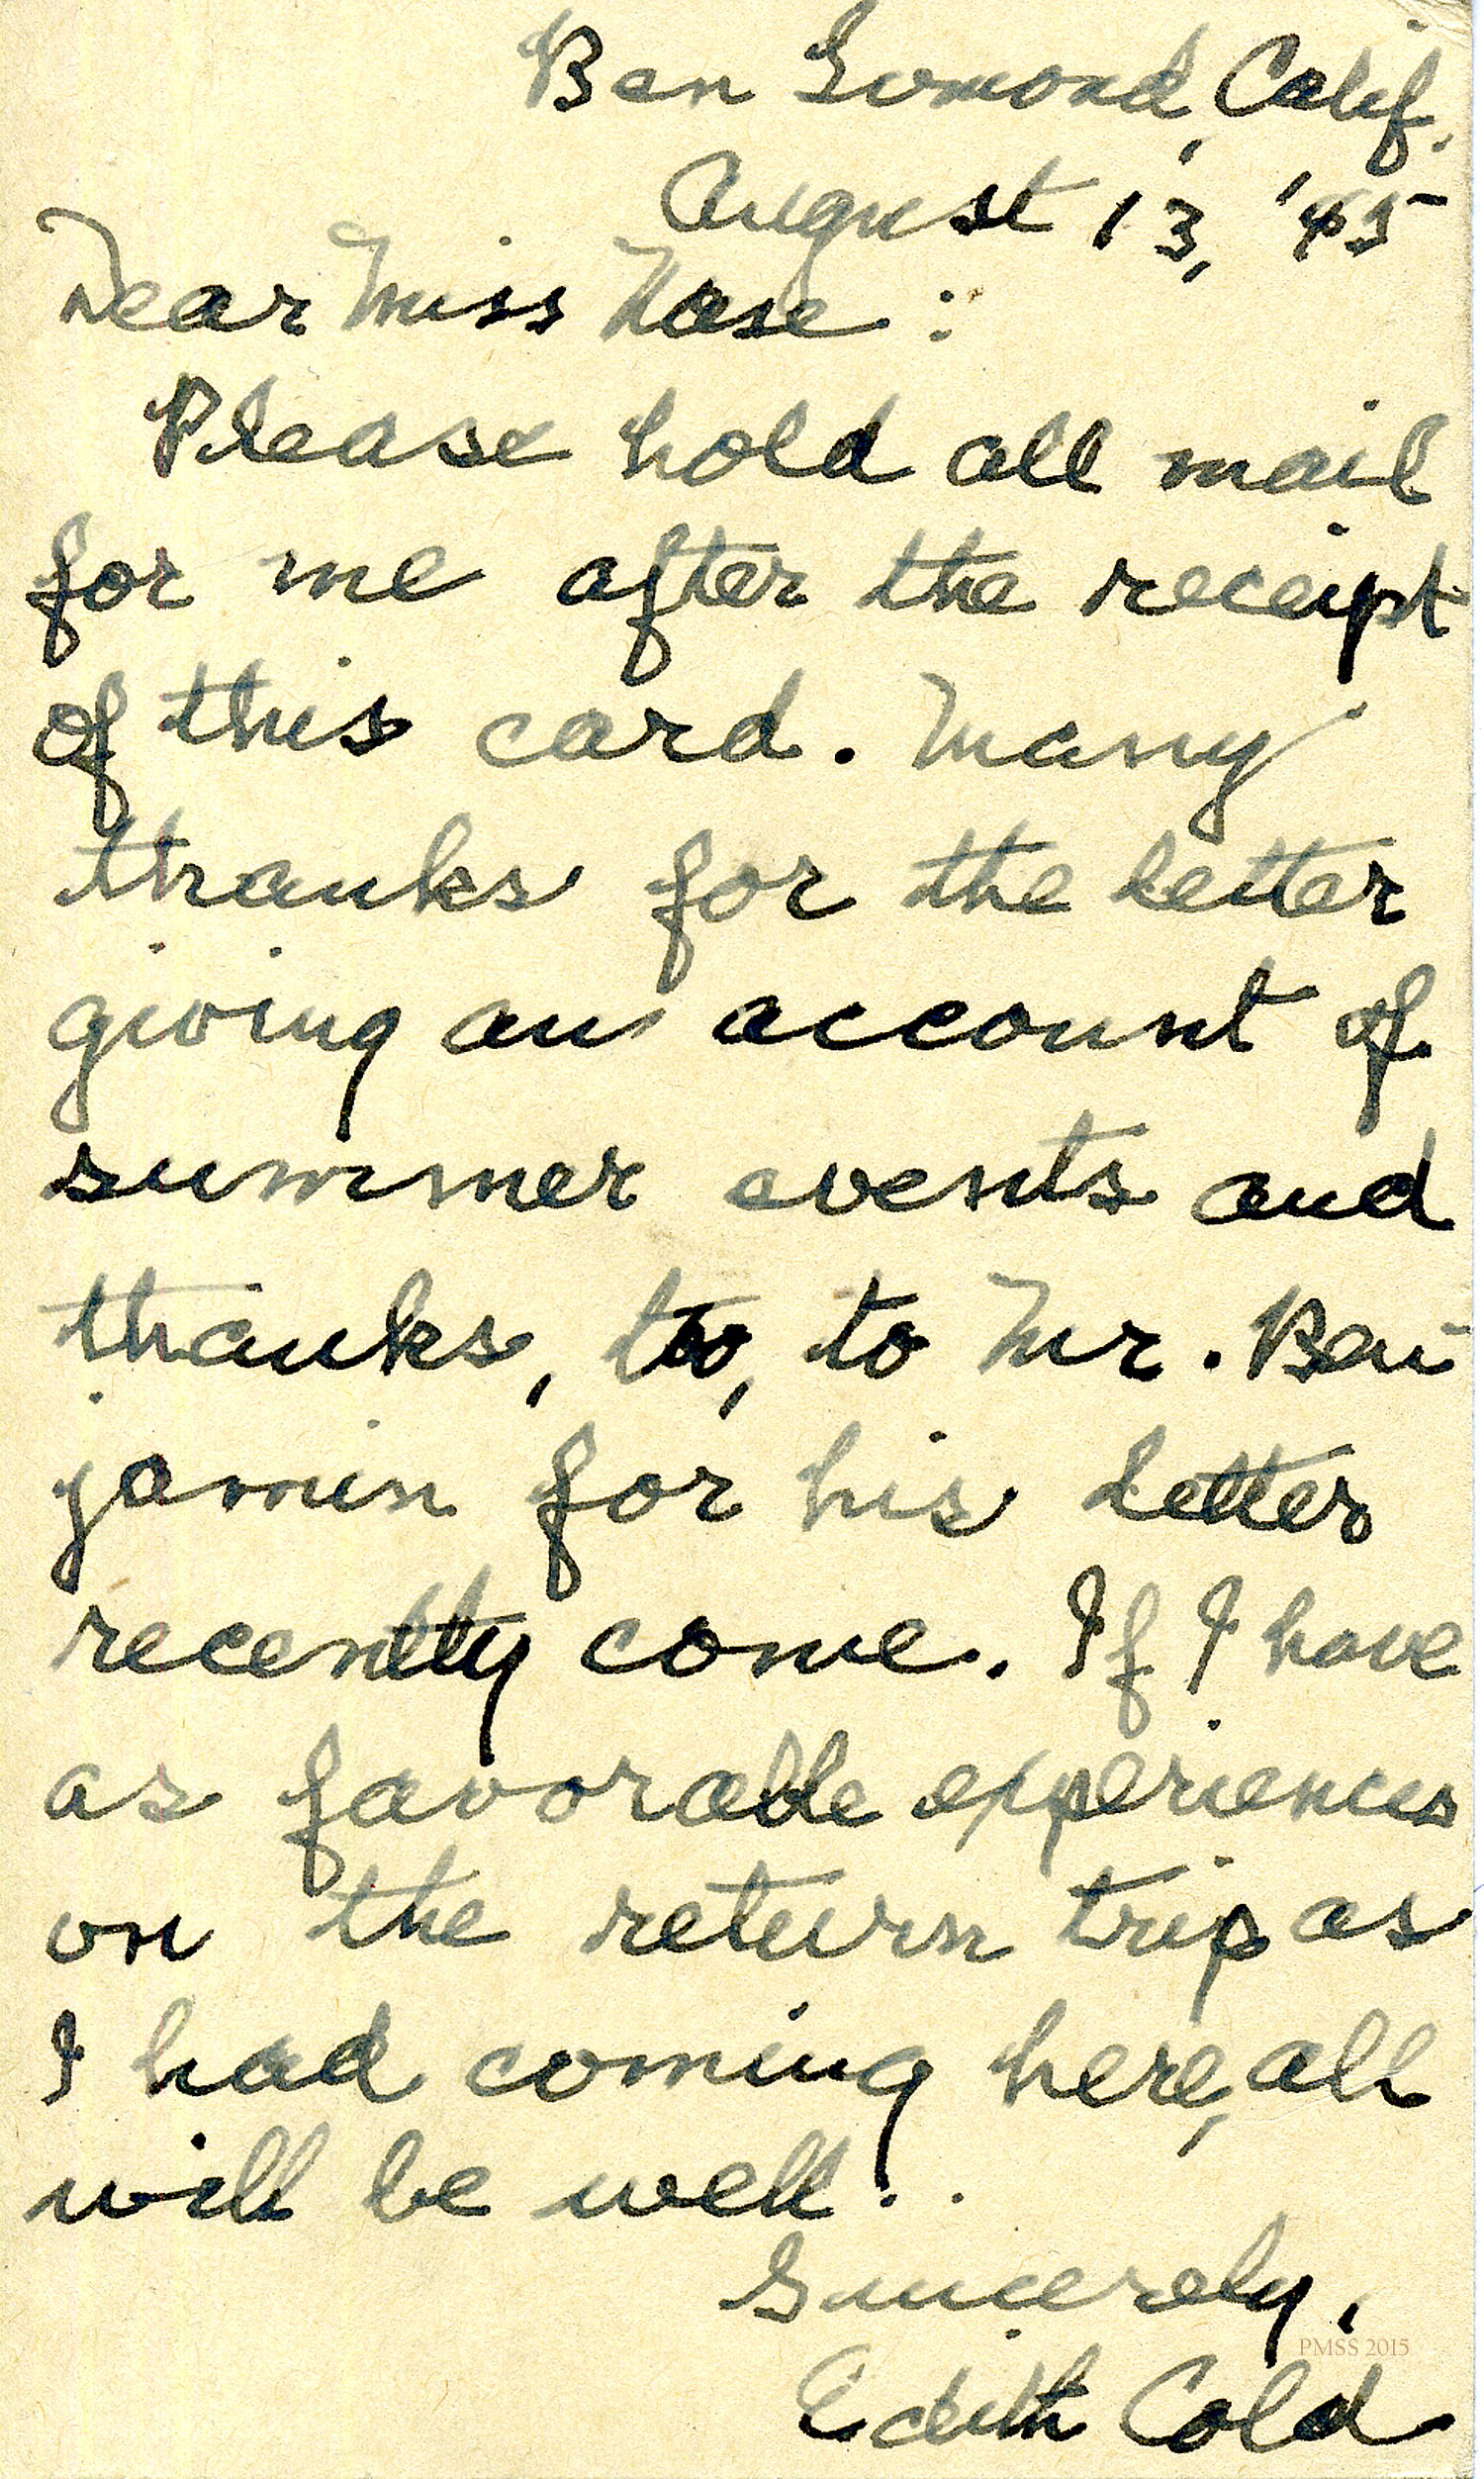 Ben Lomond, Calif.
August 13, '45
Dear Miss Nase:
Please hold all mail
for me after the receipt
of this card. Many
thanks for the letter
giving an account of
summer events and
thanks, too, to Mr. Ben-
jamin for his letter
recently come. If I have
as favorable experiences
on the return trip as
I had coming here, all
will be well.
Sincerely,
PMSS 2015
Edith Cold